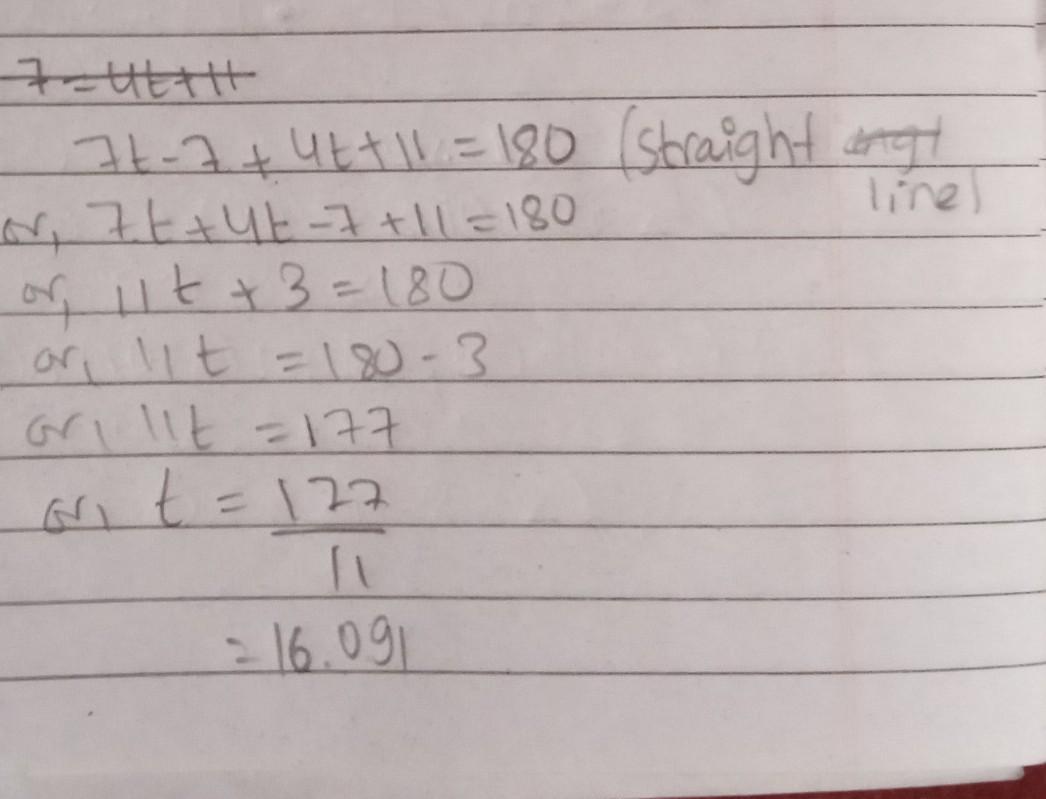 7 = 4t+11
7t-7 + 4t+11 = 180 (straight angl
line)
or, 7t+4t-7+11 = 180
or, 11t + 3 = 180
or, 11t = 180 - 3
or, 11t = 177
or, t = 177
11
= 16.091